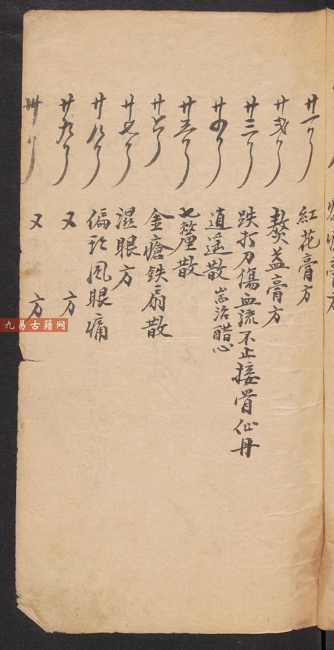 廿一 紅花膏方
廿弍 膏方
廿三 跌打刀傷血流不止接骨仙丹
廿四 逍遥散 耑治醋心
廿五 七釐散
廿六 金瘡铁扇散
廿七 湿眼方
廿八 偏风眼痛
廿九 又方
卅 又方
九易古籍网